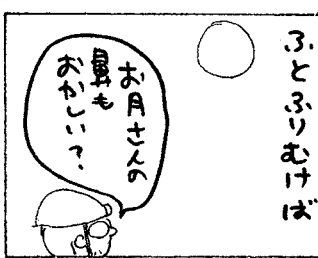 ふとふりむけば
お月さんの
鼻も
おかしい?